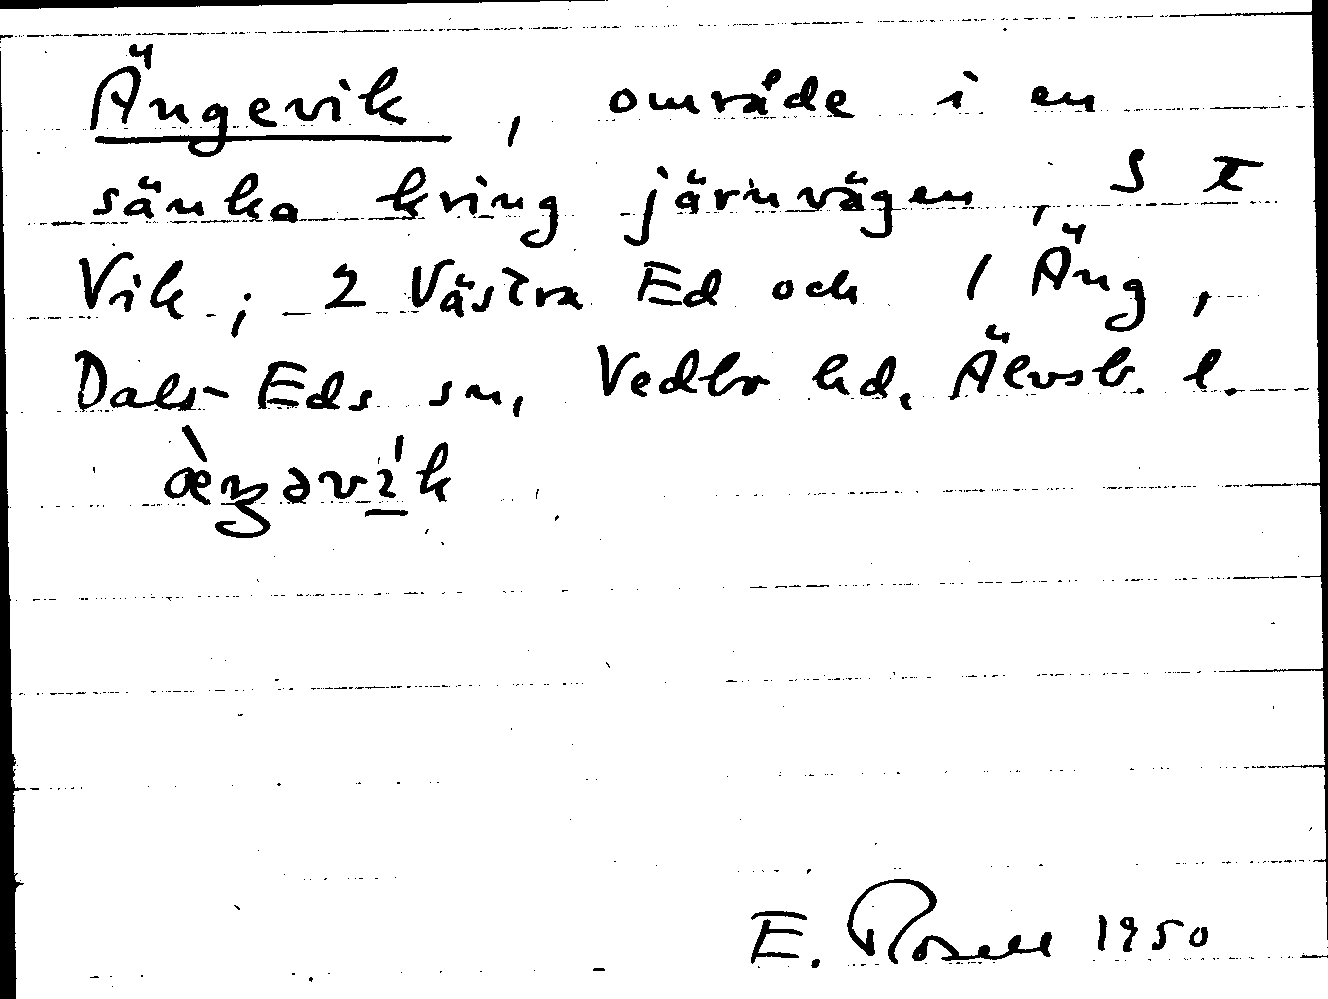 Ängevik, område i en
sänka kring järnvägen, S t
Vik; 2 Västra Ed och 1 Äng,
Dals-Eds sn, Vedbo hd, Älvsb. l.
æ̀ŋəvi̲ ́k
E. Rosell 1950